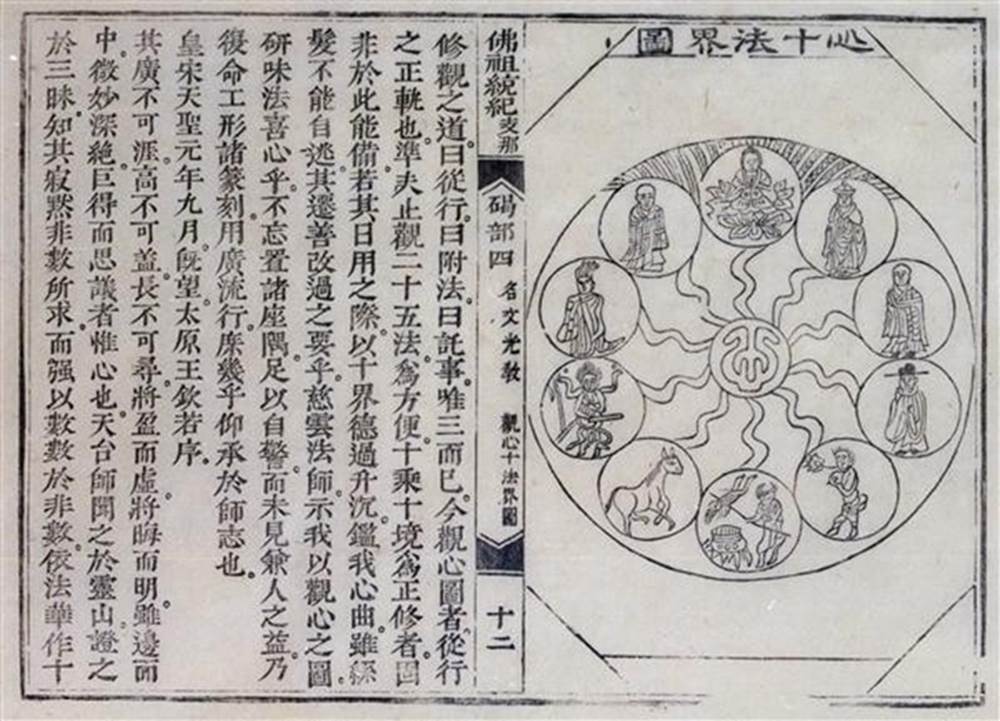 心十法界圖
心
佛祖統紀 支那 碣部四 名文光教 觀心十法界圖 十二
修觀之道。曰從行。曰附法。曰託事。唯三而已。今觀心圖者。從行
之正軌也。準夫止觀二十五法。為方便。十乘十境為正修者。圖
非於此能備。若其日用之際。以十界德過升沉。鑑我心曲。雖絲
髮不能自逃。其遷善改過之要乎。慈雲法師。示我以觀心之圖。
研味法喜。心乎不忘。置諸座隅。足以自警。而未見兼人之益。乃
復命工形諸篆刻。用廣流行。庶幾乎仰承於師志也。
皇宋天聖元年九月。既望。太原王欽若序。
其廣。不可涯。高不可蓋。長不可尋。將盈而虛。將晦而明。雖邊而
中。微妙深絕。巨得而思議者。惟心也。天台師聞之於靈山。證之
於三昧。知其寂默非數所求。而强以數數於非數。依法華作十